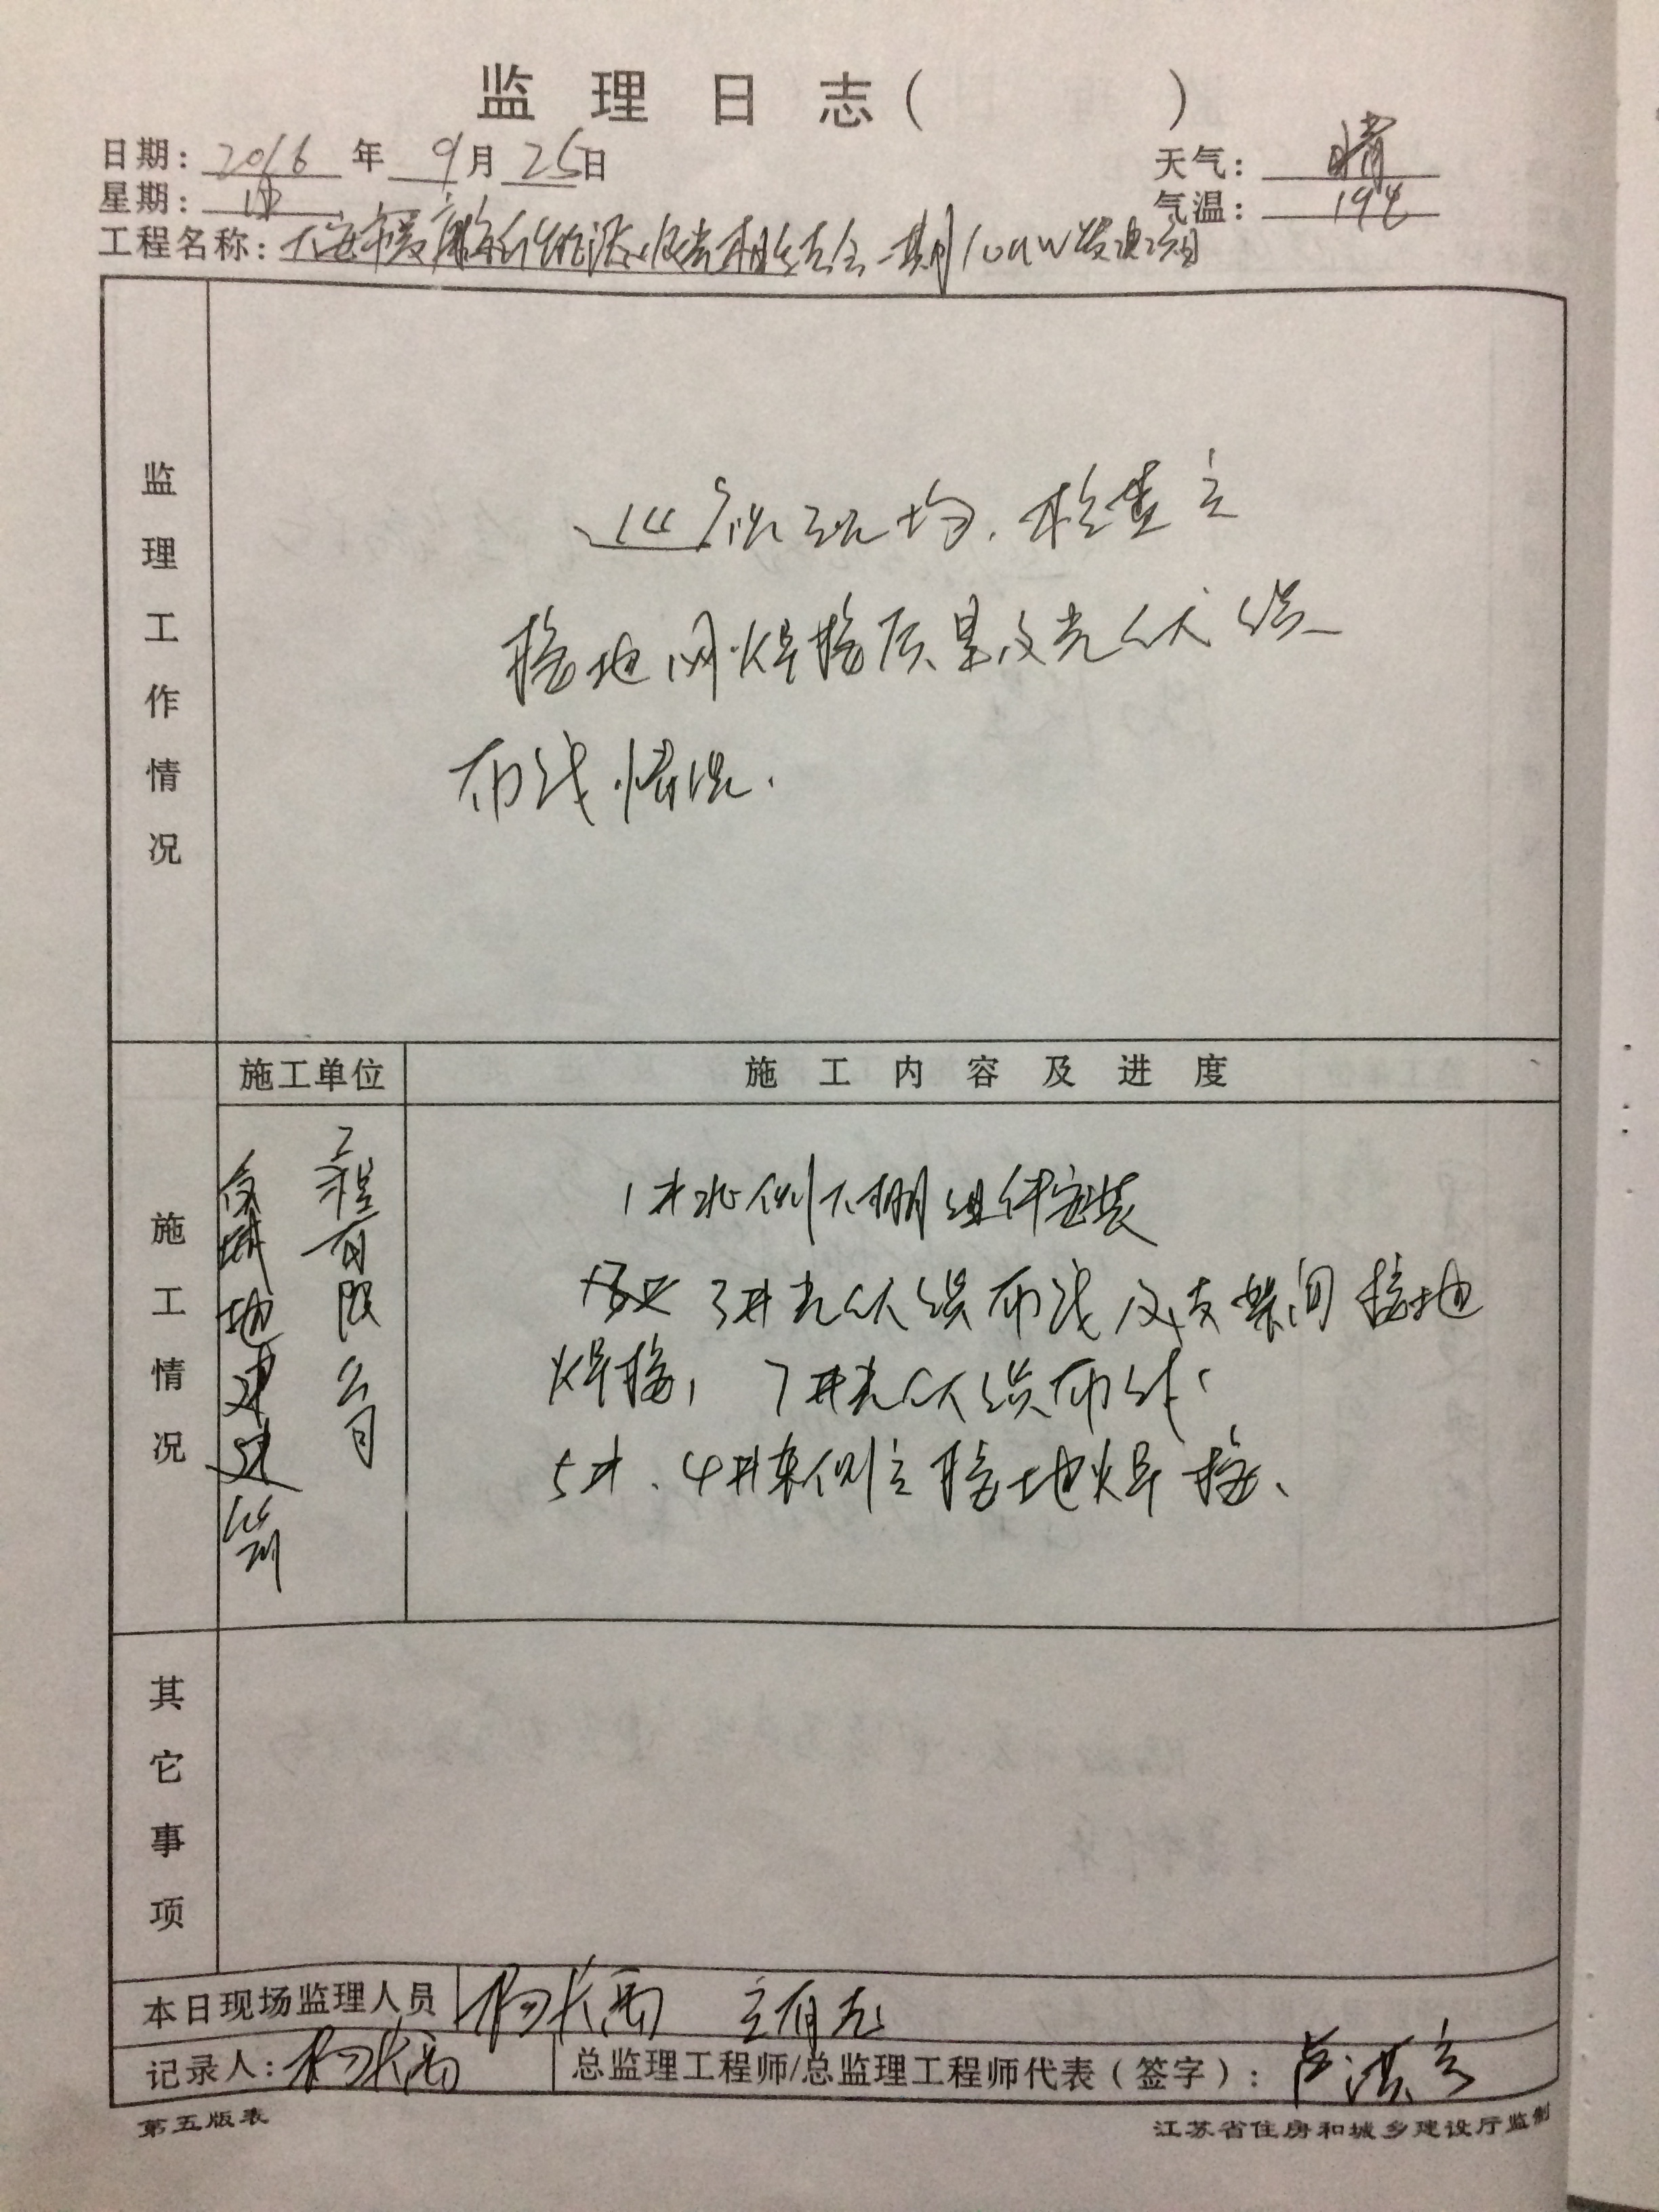 监理日志（ ）
日期：2016年9月25日 天气：晴
星期： 气温：19℃
工程名称： 一期10MW发电项目
监理工作情况
巡视现场，检查主
接地网焊接质量及光伏组
布线情况.
施工单位 施工内容及进度
施工情况
地建建筑
工程有限公司
1#北侧大棚组件安装
3#光伏组布线及支架间接地
焊接，7#光伏组布线、
5#、4#东侧主接地焊接、
其它事项
本日现场监理人员
记录人： 总监理工程师/总监理工程师代表（签字）：
第五版表 江苏省住房和城乡建设厅监制